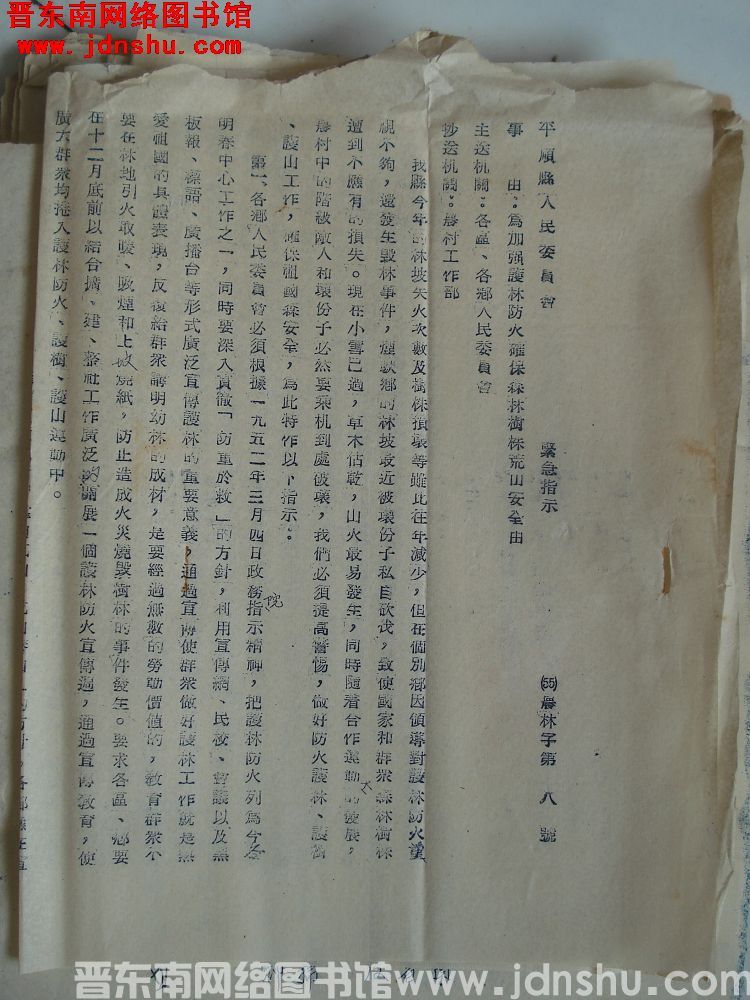 晋东南网络图书馆
www.jdnshu.com
平順縣人民委員會 緊急指示 (55)農林字第八號
事由：為加强護林防火確保森林樹株荒山安全由
主送机關：各區、各鄉人民委員會
抄送机關：農村工作部
我縣今年的林坡失火次數及樹株損壞等雖比在年減少，但在個別鄉因領導對護林防火重
視不夠，還發生毀林事件，鄉的林坡最近被壞份子私自砍伐，致使國家和群衆森林樹株
遭到不應有的損失。現在小雪已過，草木估乾，山火最易發生，同時隨着合作運動的大發展，
農村中的階級敵人和壞份子必然要乘机到處破壞，我們必須提高警惕，做好防火護林、護樹
、護山工作，確保祖國森安全，為此特作以下指示。
第一、各鄉人民委員會必須根據一九五二年三月四日政務院指示精神，把護林防火列為今冬
明春中心工作之一，同時要深入貫徹「防重於救」的方針，利用宣傳網、民校、會議以及黑
板報、標語、廣播台等形式廣泛宣傳護林的重要意義，通過宣傳使群衆做好護林工作就是熱
愛祖國的具體表現，反復給群衆講明幼林的成材，是要經過無數的勞動價值的，敎育群衆不
要在林地引火取暖、吸煙和上坟燒紙，防止造成火災燒毀樹林的事件發生。要求各區、鄉要
在十二月底前以結合擴、建、整社工作廣泛的開展一個護林防火宣傳週，通過宣傳敎育，使
廣大群衆均捲入護林防火、護樹、護山運動中。
晋东南网络图书馆 www.jdnshu.com